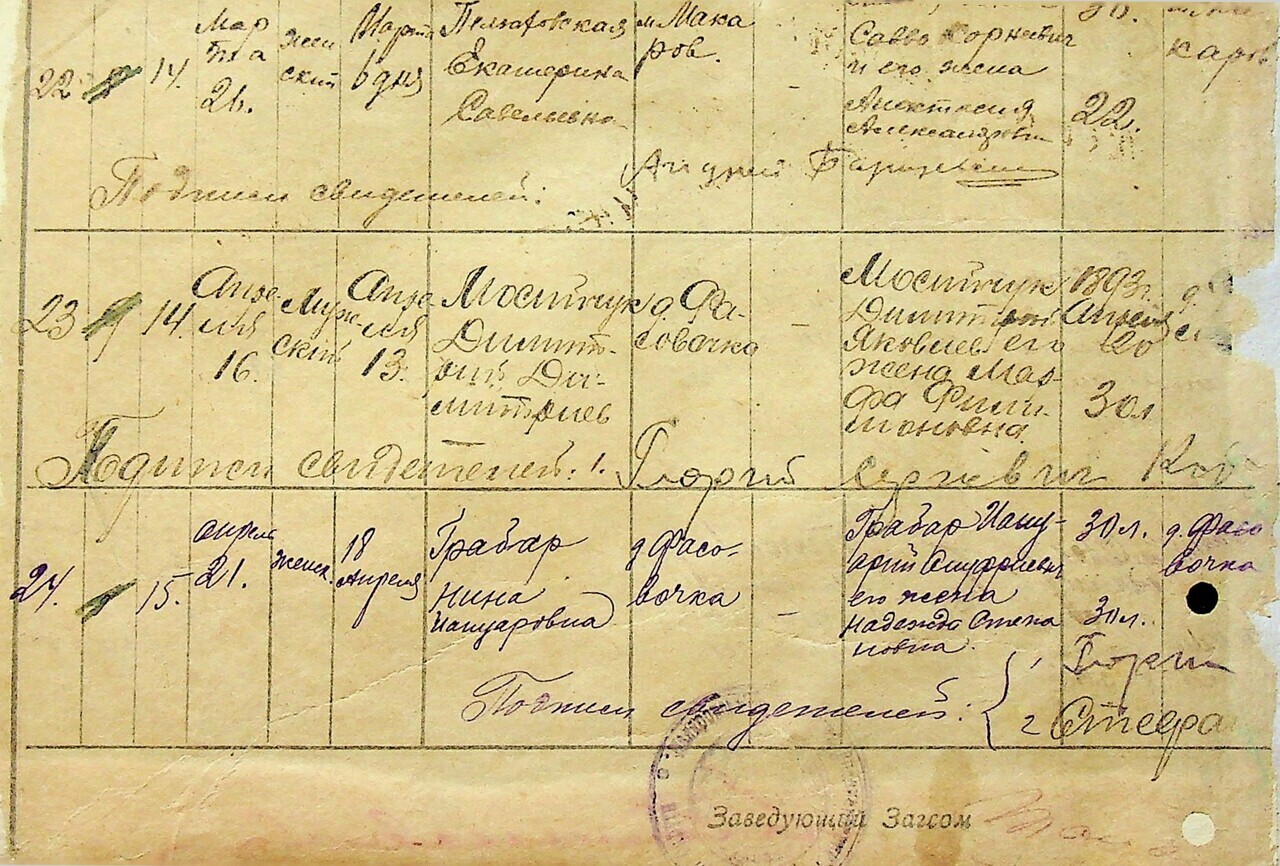 22 14. Мар та 26. жен ский Марта 6 дня
Екатерина
Савельевна
м. Мака ров.
Савва Корневич
и его жена
Анастасия
Александров
22.
Подписи свидетелей:
Андрей
23 14. Апре ля 16. Муж ский Апре ля 13.
Мосийчук
Димит-
рий Ди-
митриев
д. Фа-
совочка
-
Мосийчук
Димитрий
Яковлев его
жена Мар-
фа Фили-
моновна
1893 г.
Апреля
20
30 л
Подписи свидетелей: 1. Георгий Сергиевич
24. 15. апреля 21. женск. 18 Апреля
Грабар
Нина
д. Фасо-
вочка
-
Грабар
его жена
Надежда Степа
новна
30 л.
30 л.
д. Фасо
вочка
Подписи свидетелей: { 1 Георгий
2 Стефа
Заведующий Загсом